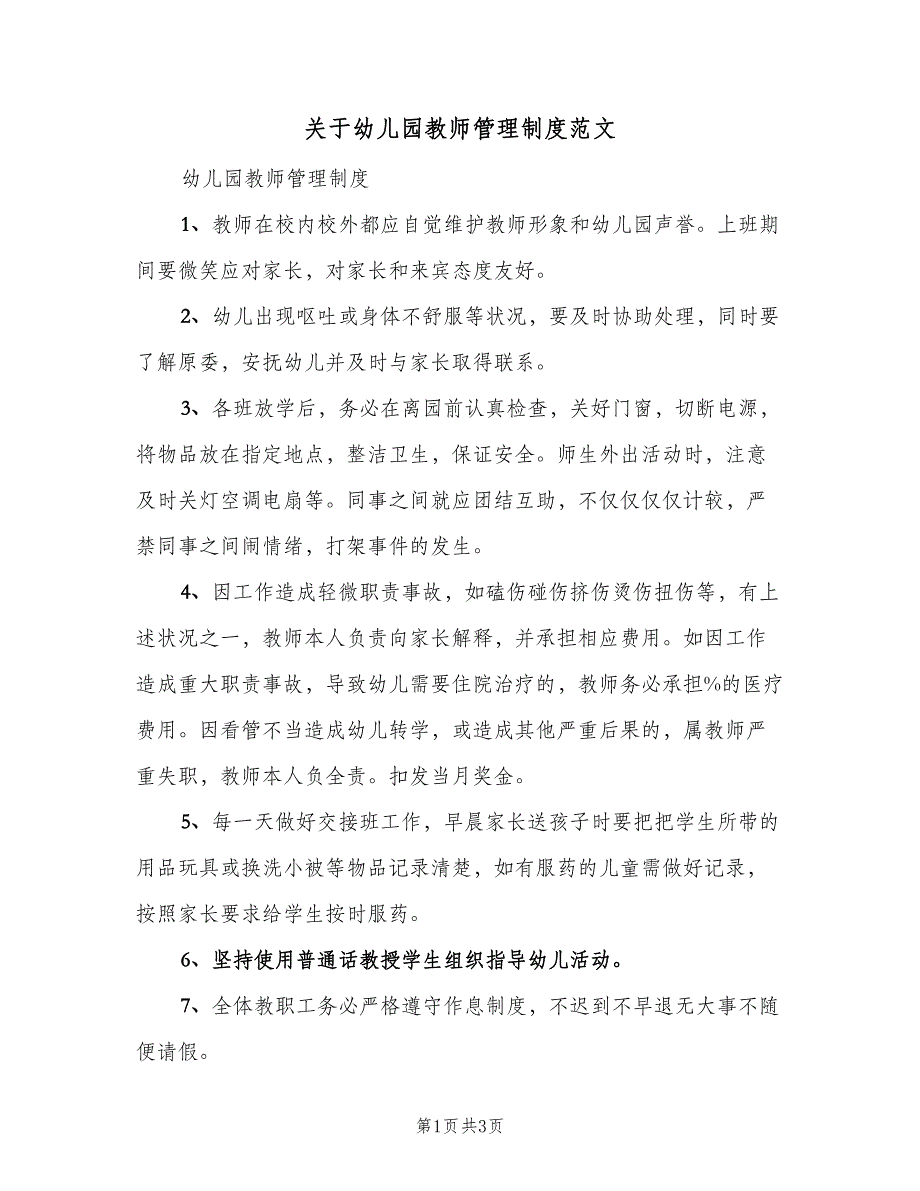 关于幼儿园教师管理制度范文
幼儿园教师管理制度
1、教师在校内校外都应自觉维护教师形象和幼儿园声誉。上班期
间要微笑应对家长，对家长和来宾态度友好。
2、幼儿出现呕吐或身体不舒服等状况，要及时协助处理，同时要
了解原委，安抚幼儿并及时与家长取得联系。
3、各班放学后，务必在离园前认真检查，关好门窗，切断电源，
将物品放在指定地点，整洁卫生，保证安全。师生外出活动时，注意
及时关灯空调电扇等。同事之间就应团结互助，不仅仅仅仅计较，严
禁同事之间闹情绪，打架事件的发生。
4、因工作造成轻微职责事故，如磕伤碰伤挤伤烫伤扭伤等，有上
述状况之一，教师本人负责向家长解释，并承担相应费用。如因工作
造成重大职责事故，导致幼儿需要住院治疗的，教师务必承担%的医疗
费用。因看管不当造成幼儿转学，或造成其他严重后果的，属教师严
重失职，教师本人负全责。扣发当月奖金。
5、每一天做好交接班工作，早晨家长送孩子时要把把学生所带的
用品玩具或换洗小被等物品记录清楚，如有服药的儿童需做好记录，
按照家长要求给学生按时服药。
6、坚持使用普通话教授学生组织指导幼儿活动。
7、全体教职工务必严格遵守作息制度，不迟到不早退无大事不随
便请假。
第1页共3页